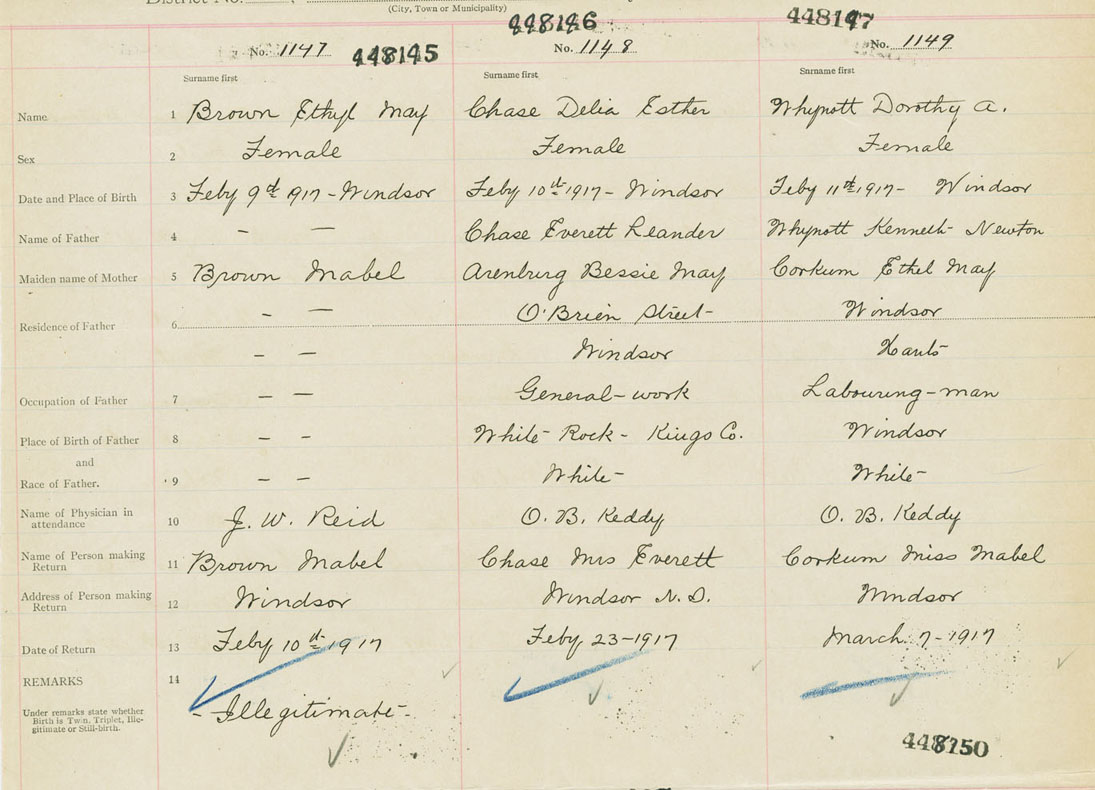 District No.
(City, Town or Municipality)
No. 1147 448145
448146
No. 1148
448147
No. 1149
Surname first Surname first Surname first
Name 1 Brown Ethyl May Chase Delia Esther Whynott Dorothy A.
Sex 2 Female Female Female
Date and Place of Birth 3 Feby 9d 1917 - Windsor Feby 10th 1917 - Windsor Feby 11th 1917 - Windsor
Name of Father 4 - - Chase Everett Leander Whynott Kenneth Newton
Maiden name of Mother 5 Brown Mabel Arenburg Bessie May Corkum Ethel May
Residence of Father 6 - - O'Brien Street Windsor
- - Windsor Hants
Occupation of Father 7 - - General-work Labouring-man
Place of Birth of Father 8 - - White Rock - Kings Co. Windsor
and
Race of Father. 9 - - White White
Name of Physician in attendance 10 J. W. Reid O. B. Keddy O. B. Keddy
Name of Person making Return 11 Brown Mabel Chase Mrs Everett Corkum Miss Mabel
Address of Person making Return 12 Windsor Windsor N.S. Windsor
Date of Return 13 Feby 10d 1917 Feby 23-1917 March 7-1917
REMARKS 14
Under remarks state whether
Birth is Twin, Triplet, Ille-
gitimate or Still-birth.
- Illegitimate -
448150